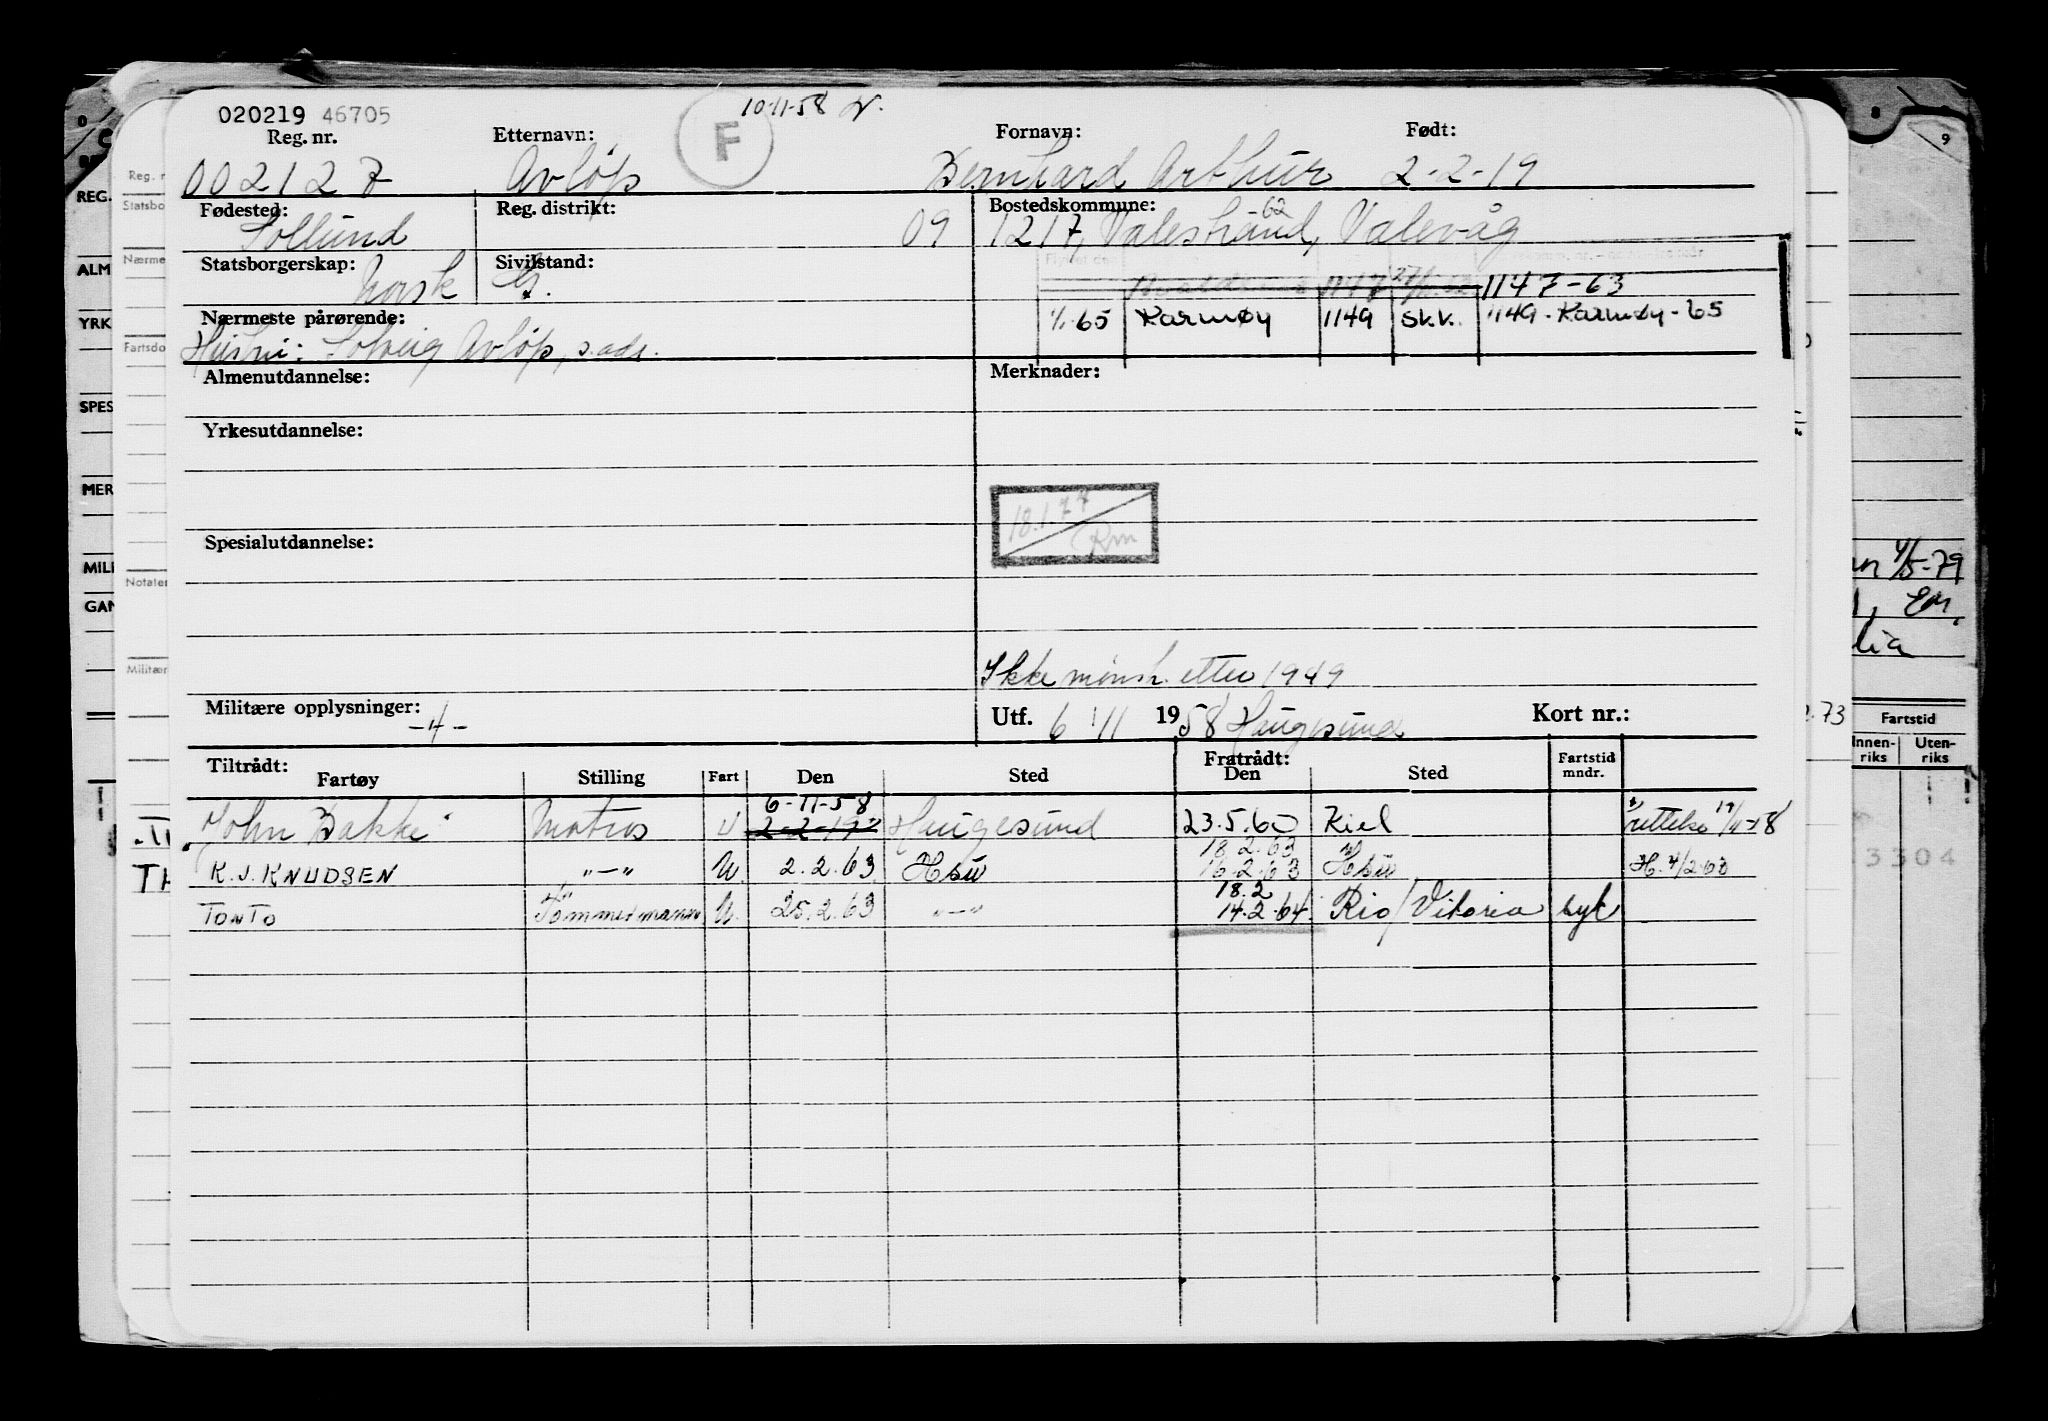 020219 46705
10-11-58
F
Reg. nr. Etternavn: Fornavn: Født:
002127 Avløp Bernhard Arthur 2-2-19
Fødested: Reg. distrikt: Bostedskommune:
Sollund 09 1217, Valestrand, Valevåg
62
Statsborgerskap: Sivilstand:
Norsk G.
1147 1147-63
Nærmeste pårørende:
1/1-65 Karmøy 1149 SK.V. 1149-Karmøy-65
Hustru: Solveig Avløp, s.adr.
Almenutdannelse: Merknader:
Yrkesutdannelse:
18.1.77
Rm
Spesialutdannelse:
Ikke mønstr. etter 1949
Militære opplysninger: Utf. 6/11 1958 Haugesund Kort nr.:
-4-
Tiltrådt: Fratrådt:
Fartøy Stilling Fart Den Sted Den Sted Fartstid mndr.
6-11-58
John Bakke Matros U 2-2-19 Haugesund 23.5.60 Kiel
18.2.63
K.J. KNUDSEN -"- U. 2.2.63 Hsu 16.2.63 Hsu H. 4/2-63
18.2
TONTO Tømmermann U. 25.2.63 -"- 14.2.64 Rio/Vitoria syk
REG.
ALM
YRK
SPES
MER
MILI
GAN
Reg. n
Statsbo
Nærme
Fartsdo
Notater
Militær
8
9
4/5-79
Em.
lia
73
Fartstid
Innen-riks Uten-riks
3304